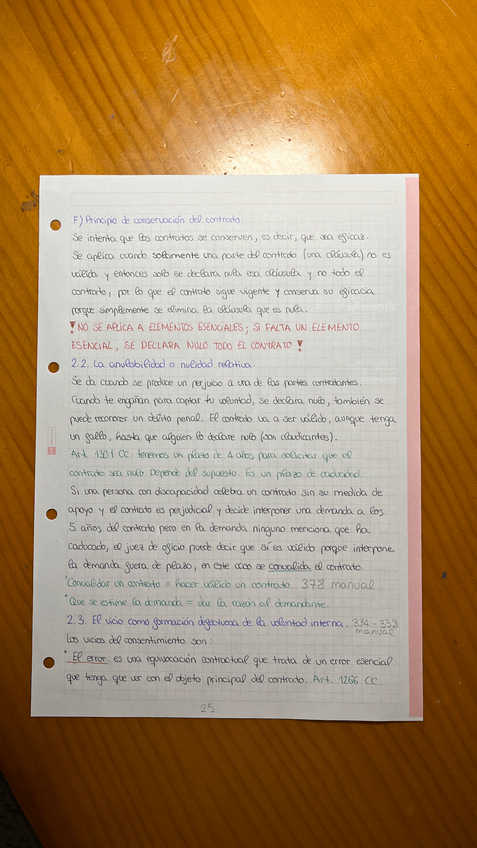 F) Principio de conservación del contrato.
Se intenta que los contratos se conserven, es decir, que sea eficaz.
Se aplica cuando solamente una parte del contrato (una cláusula) no es
válida y entonces solo se declara nula esa cláusula y no todo el
contrato, por lo que el contrato sigue vigente y conserva su eficacia
porque simplemente se elimina la cláusula que es nula.
❗NO SE APLICA A ELEMENTOS ESENCIALES; SI FALTA UN ELEMENTO
ESENCIAL, SE DECLARA NULO TODO EL CONTRATO❗
2.2. La anulabilidad o nulidad relativa.
Se da cuando se produce un perjuicio a una de las partes contratantes.
Cuando te engañan para captar tu voluntad, se declara nulo, también se
puede reconocer un delito penal. El contrato va a ser válido, aunque tenga
un fallo, hasta que alguien lo declare nulo (son claudicantes).
Art. 1301 CC: tenemos un plazo de 4 años para solicitar que el
contrato sea nulo. Depende del supuesto. Es un plazo de caducidad.
Si una persona con discapacidad celebra un contrato sin su medida de
apoyo y el contrato es perjudicial y decide interponer una demanda a los
5 años del contrato pero en la demanda ninguno menciona que ha
caducado, el juez de oficio puede decir que sí es válido porque interpone
la demanda fuera de plazo, en este caso se convalida el contrato.
*Convalidar un contrato = hacer válido un contrato. 378 manual
*Que se estime la demanda = dar la razón al demandante.
2.3. El vicio como formación defectuosa de la voluntad interna. 334-353 manual
Los vicios del consentimiento son:
* El error: es una equivocación contractual que trata de un error esencial
que tenga que ver con el objeto principal del contrato. Art. 1266 CC.
25